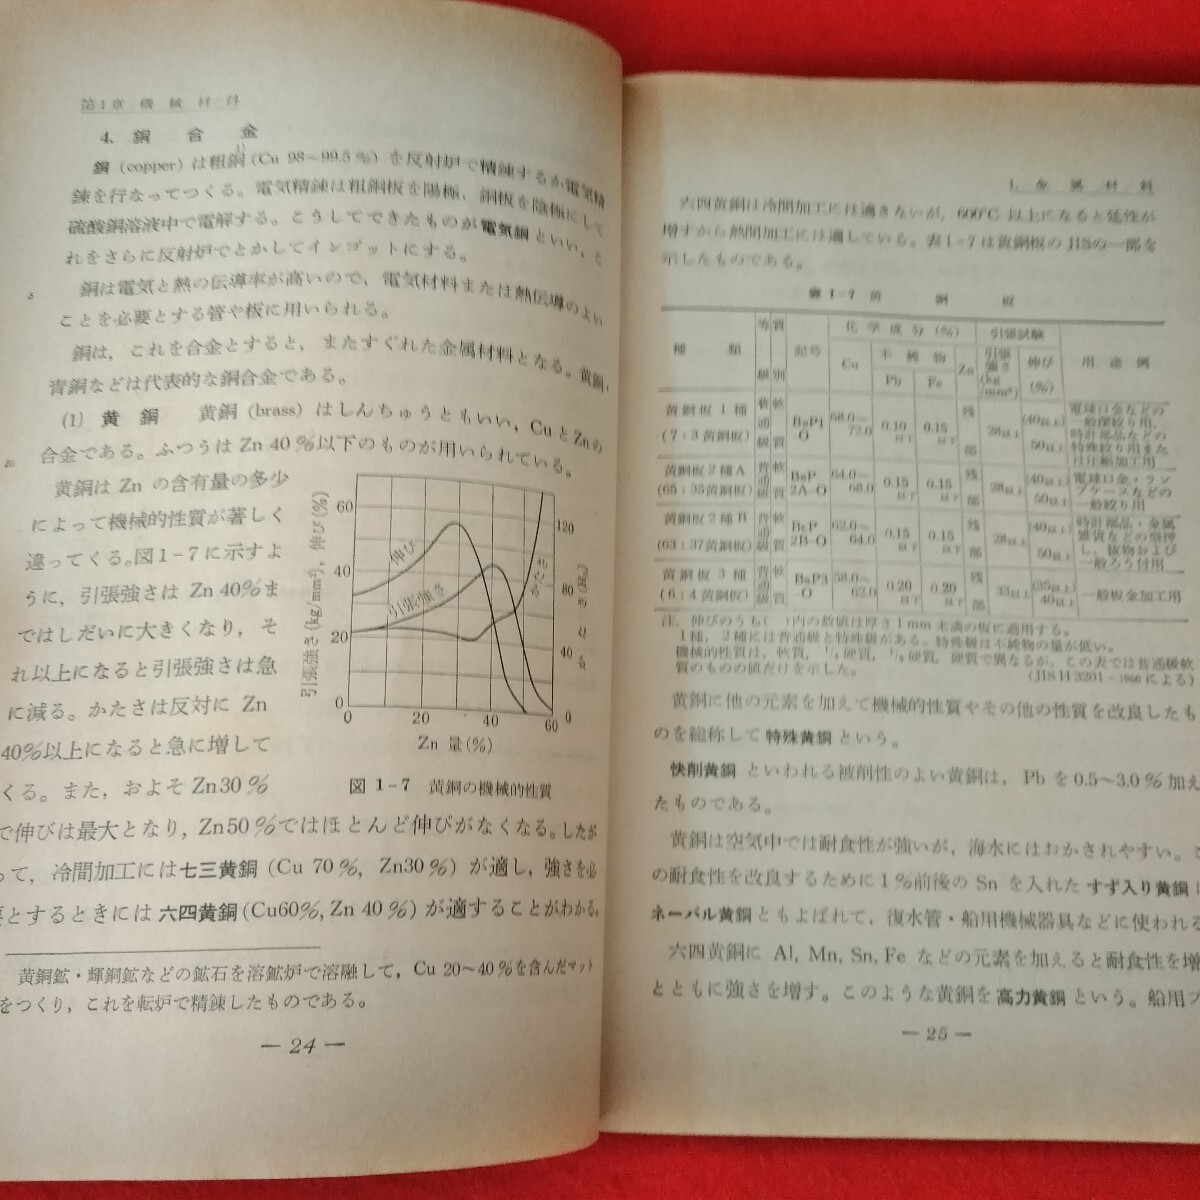 第1章 機械材料
4. 銅合金
銅 (copper) は粗銅1) (Cu 98~99.5%) を反射炉で精錬するか電気精
錬を行なってつくる。電気精錬は粗銅板を陽極，銅板を陰極にして
硫酸銅溶液中で電解する。こうしてできたものが電気銅といい，こ
れをさらに反射炉でとかしてインゴットにする。
5
銅は電気と熱の伝導率が高いので，電気材料または熱伝導のよい
ことを必要とする管や板に用いられる。
銅は，これを合金とすると，またすぐれた金属材料となる。黄銅，
青銅などは代表的な銅合金である。
(1) 黄銅 黄銅 (brass) はしんちゅうともいい，Cu と Zn の
10
合金である。ふつうは Zn 40%以下のものが用いられている。
黄銅は Zn の含有量の多少
によって機械的性質が著しく
違ってくる。図1-7に示すよ
うに，引張強さは Zn 40%ま
ではしだいに大きくなり，そ
れ以上になると引張強さは急
に減る。かたさは反対に Zn
40%以上になると急に増して
くる。また，およそ Zn30%
で伸びは最大となり，Zn50%ではほとんど伸びがなくなる。したが
って，冷間加工には七三黄銅 (Cu 70%, Zn30%) が適し，強さを必
要とするときには六四黄銅 (Cu60%, Zn 40%) が適することがわかる。
引張強さ (kg/mm²), 伸び (%)
60
40
20
0
伸び
引張強さ
かたさ
120
80
40
0
かたさ (HB)
0 20 40 60
Zn 量 (%)
図 1-7 黄銅の機械的性質
黄銅鉱・輝銅鉱などの鉱石を溶鉱炉で溶融して，Cu 20~40%を含んだマット
をつくり，これを転炉で精錬したものである。
— 24 —
1. 金属材料
六四黄銅は冷間加工には適さないが，600°C 以上になると延性が
増すから熱間加工には適している。表1-7は黄銅板のJISの一部を
示したものである。
表 1-7 黄銅板
種類 等級 質別 記号 化学成分 (%) 引張試験 用途例
Cu 不純物 Zn 引張強さ (kg/mm²) 伸び (%)
Pb Fe
黄銅板1種 (7:3黄銅板) 普通級 軟質 BsP1-O 68.0~72.0 0.10以下 0.15以下 残部 28以上 (40以上) 50以上 電球口金などの一般深絞り用，時計部品などの特殊絞り用また は圧延加工用
黄銅板2種A (65:35黄銅板) 普通級 軟質 BsP2A-O 64.0~68.0 0.15以下 0.15以下 残部 28以上 (40以上) 50以上 電球口金・ランプケースなどの一般絞り用
黄銅板2種B (63:37黄銅板) 普通級 軟質 BsP2B-O 62.0~64.0 0.15以下 0.15以下 残部 28以上 (40以上) 50以上 時計部品・金属雑貨などの型押し，抜物および一般ろう付用
黄銅板3種 (6:4黄銅板) 普通級 軟質 BsP3-O 58.0~62.0 0.20以下 0.20以下 残部 33以上 (35以上) 40以上 一般板金加工用
注．伸びのうち( )内の数値は厚さ1mm未満の板に適用する。
1種，2種には普通級と特殊級がある。特殊級は不純物の量が低い。
機械的性質は，軟質，1/4硬質，1/2硬質，硬質で異なるが，この表では普通級軟
質のものの値だけを示した。 (JIS H 3201-1966による)
黄銅に他の元素を加えて機械的性質やその他の性質を改良したも
のを総称して特殊黄銅という。
快削黄銅といわれる被削性のよい黄銅は，Pb を 0.5~3.0%加え
たものである。
黄銅は空気中では耐食性が強いが，海水にはおかされやすい。こ
の耐食性を改良するために1%前後の Sn を入れたすず入り黄銅は
ネーバル黄銅ともよばれて，復水管・船用機械器具などに使われる
六四黄銅に Al, Mn, Sn, Fe などの元素を加えると耐食性を増
とともに強さを増す。このような黄銅を高力黄銅という。船用プ
— 25 —